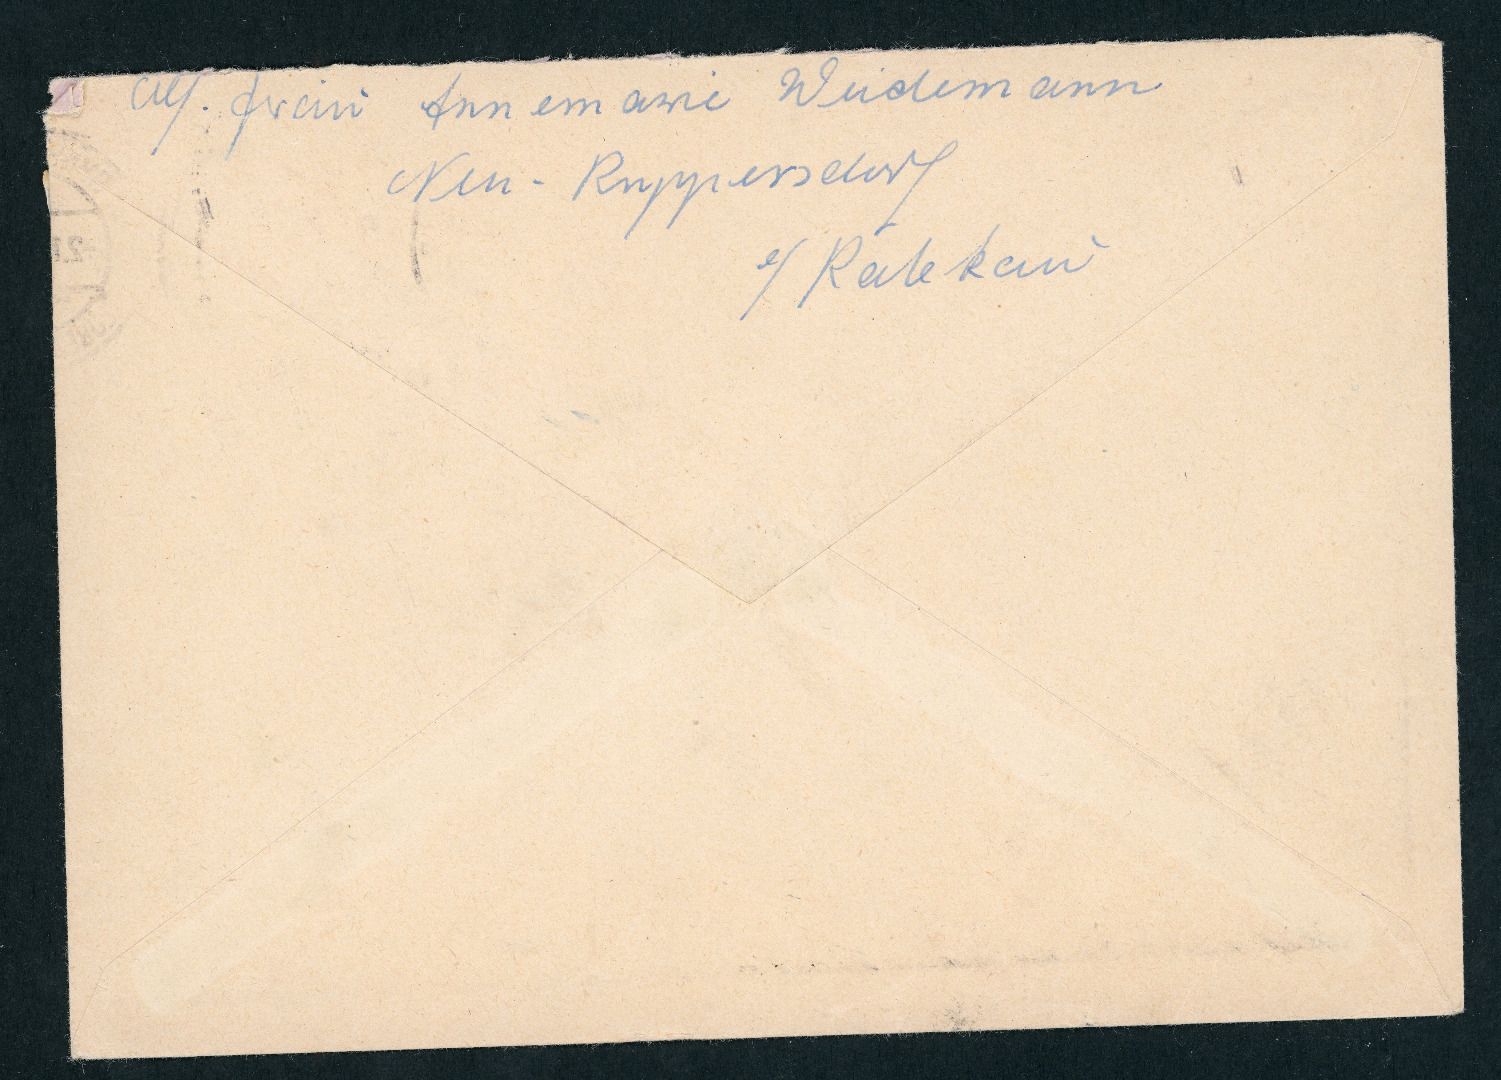 Abs. Frau Annemarie Weidemann
Neu-Ruppersdorf
b/ Ratekau